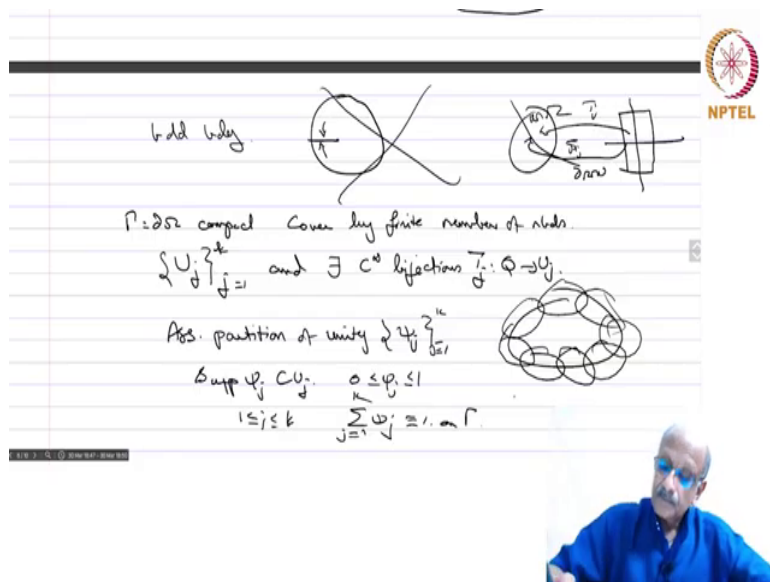 NPTEL
bdd bdy.
Γ = ∂Ω compact Cover by finite number of nbds.
{U_j}_{j=1}^k and ∃ C^∞ bijections T_j : Q → U_j.
Ass. partition of unity {ψ_j}_{j=1}^k
Supp ψ_j ⊂ U_j. 0 ≤ ψ_j ≤ 1
1 ≤ j ≤ k ∑_{j=1}^k ψ_j ≡ 1. on Γ.